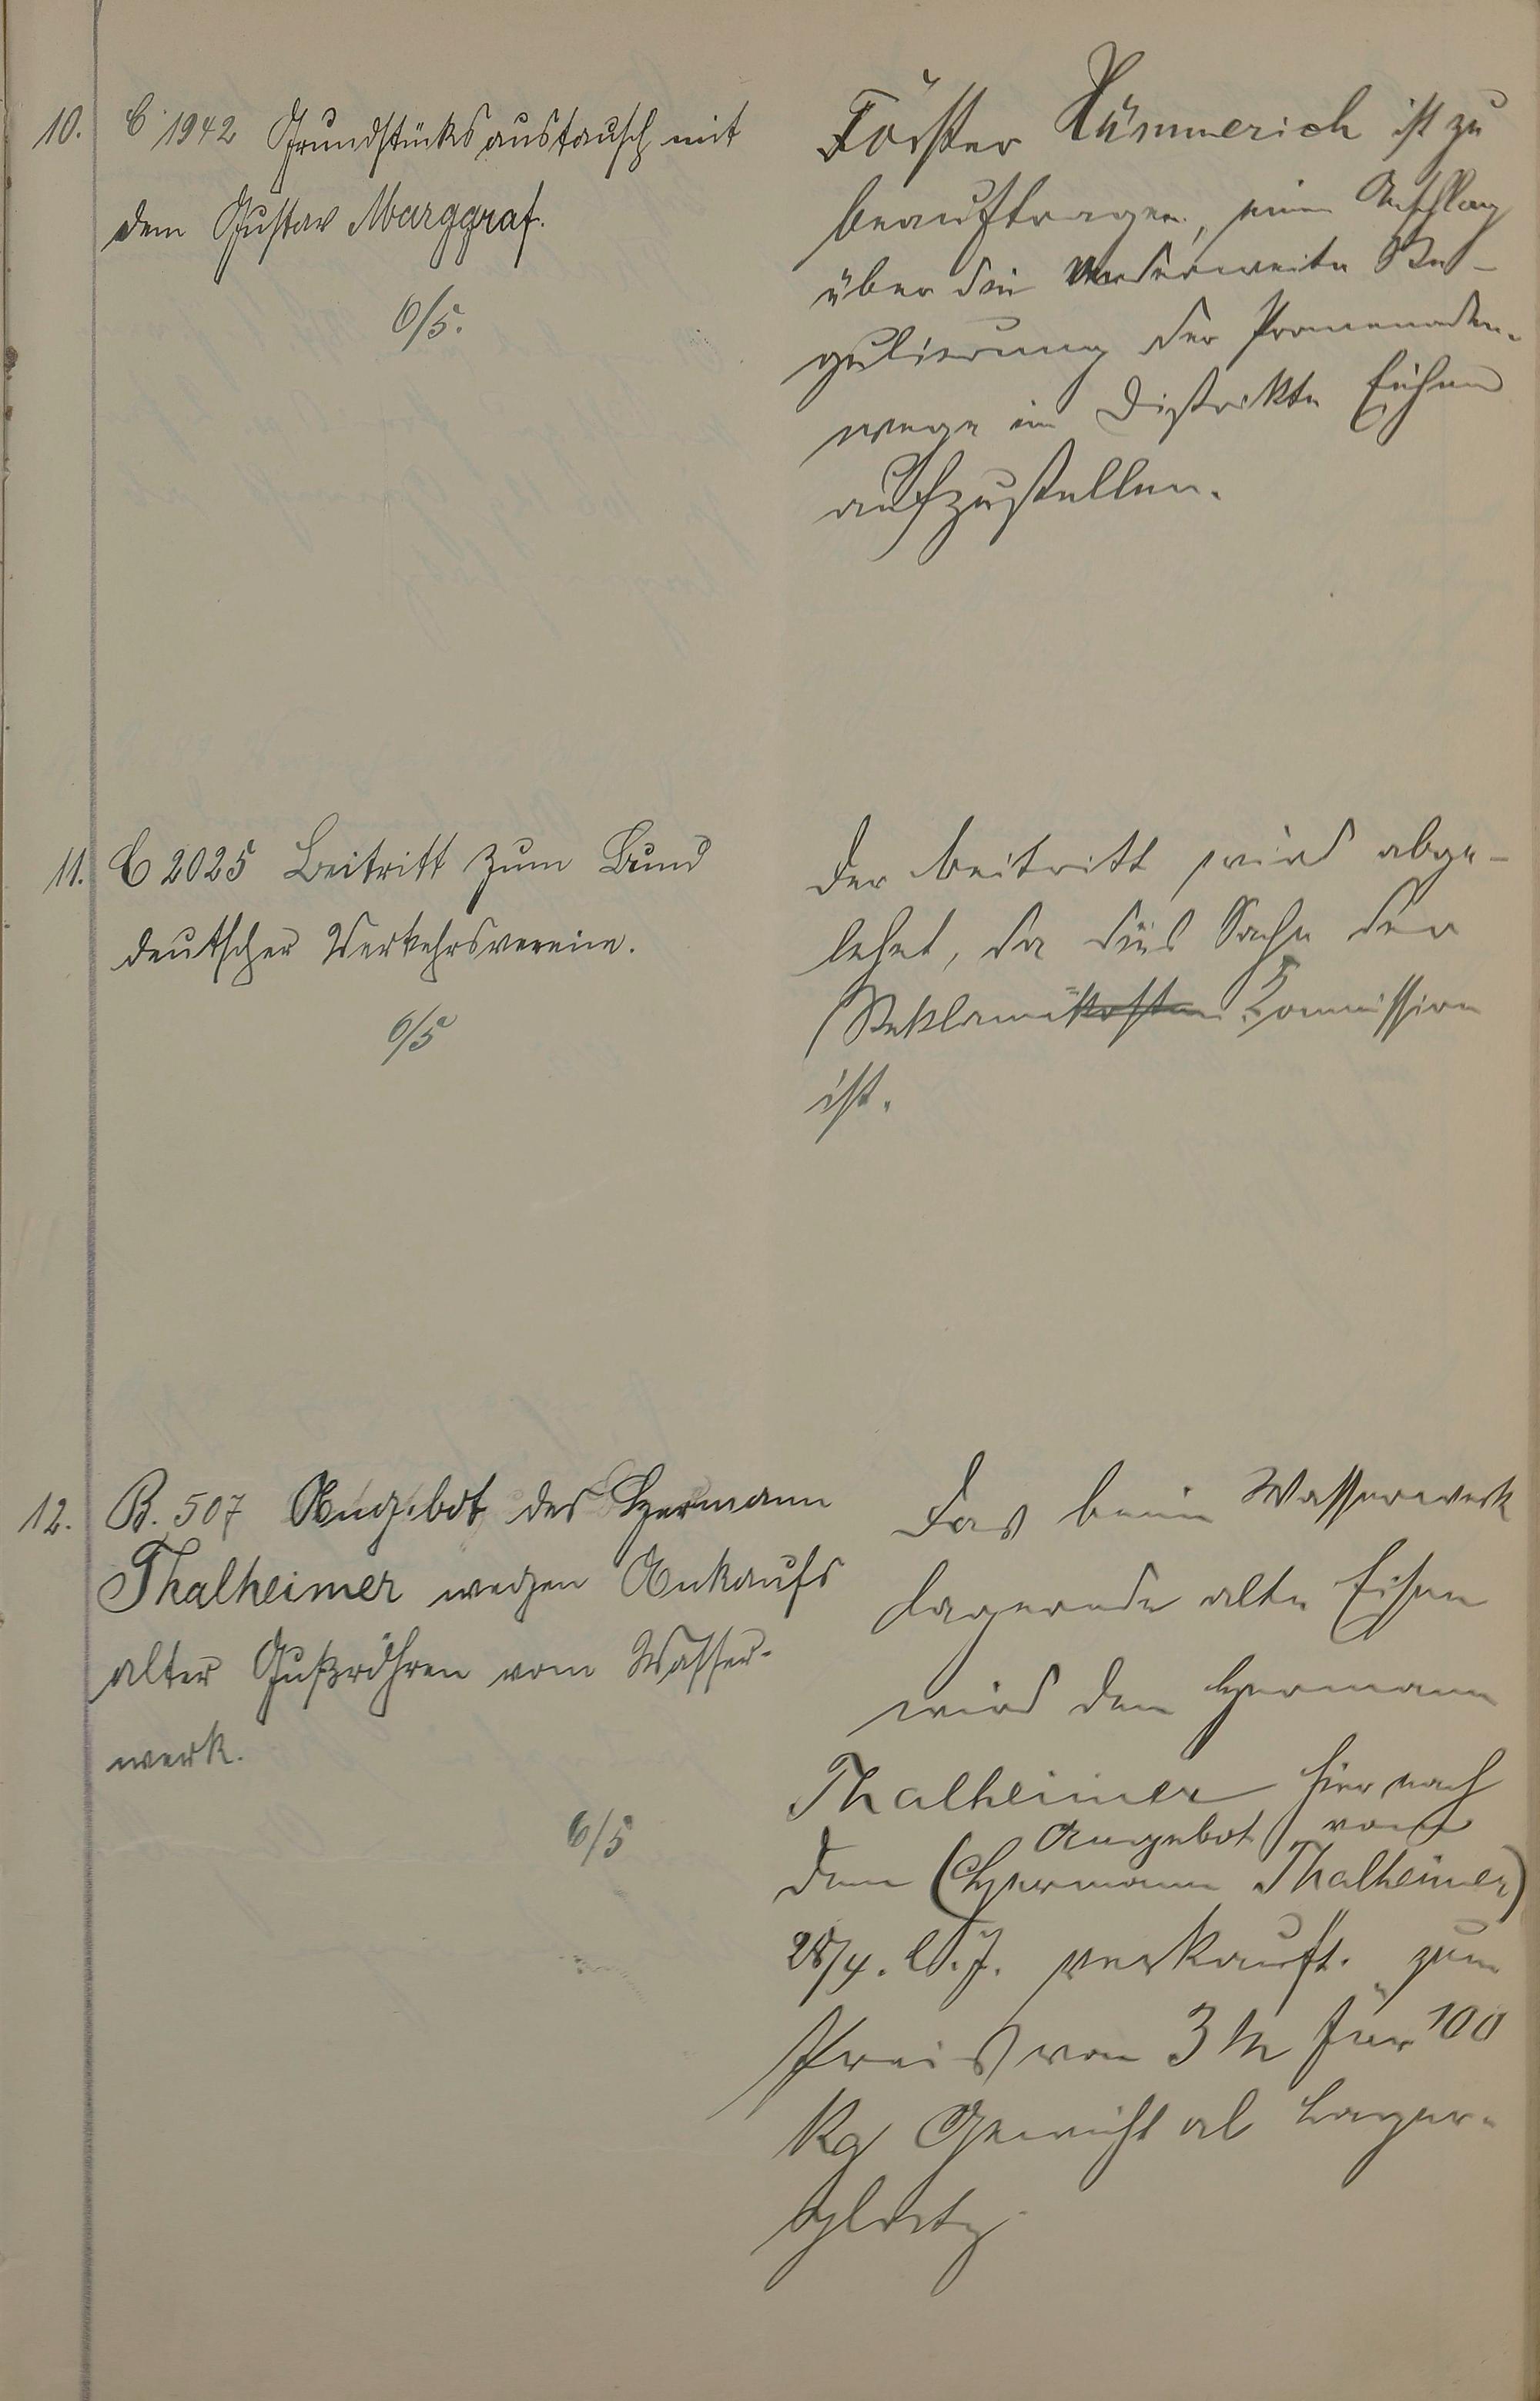 10. C 1942 Grundstücksaustausch mit
dem Gustav Marggraf.
6/5.
Förster Hümmerich ist zu
beauftragen, einen Anschlag
über die anderweite Re-
gulierung der Promenaden-
wege im Distrikte Eichen
aufzustellen.
11. C 2025 Beitritt zum Bund
deutscher Verkehrsvereine.
6/5
Der Beitritt wird abge-
lehnt, da dies Sache der
Reklame=kosten Kommission
ist.
12. B. 507 Angebot des Hermann
Thalheimer wegen Ankaufs
alter Gußröhren vom Wasser-
werk.
6/5
Das beim Wasserwerk
lagernde alte Eisen
wird dem Hermann
Thalheimer hier nach
Angebot vom
dem (Hermann Thalheimer)
28/4. l. J. verkauft. zum
Preis von 3 M für 100
Kg Gewicht ab Lager-
platz.